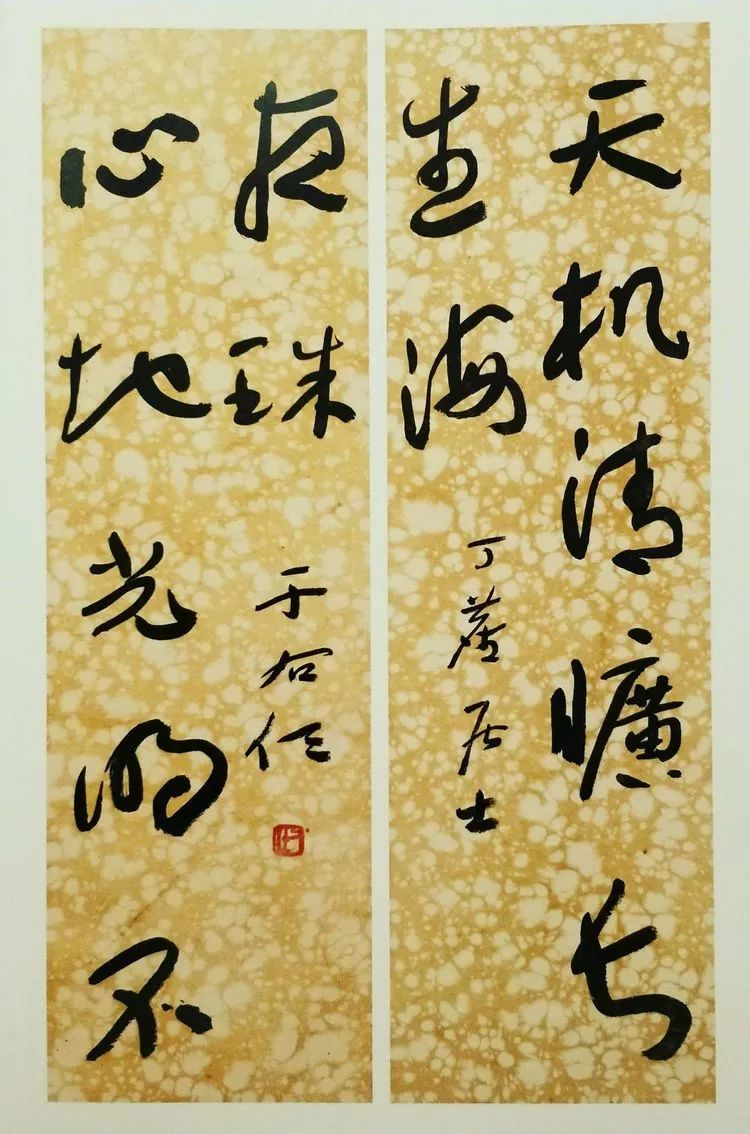 天机清曠长
生海
丁 居士
心地光明不
夜珠
于右任